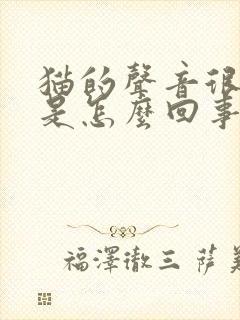 猫的聲音很
是怎麼回事
福澤徹三 薩